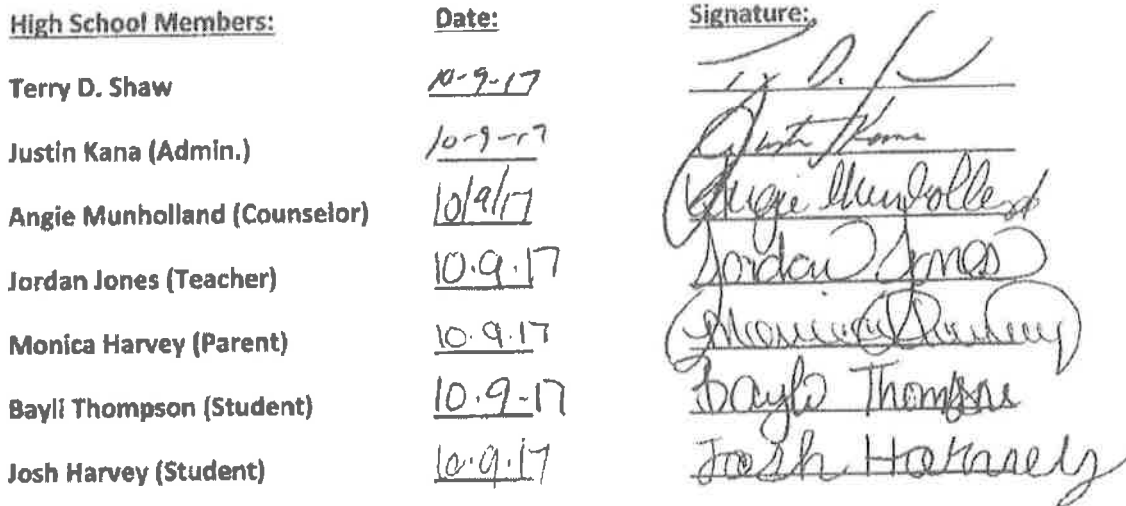 High School Members: Date: Signature:
Terry D. Shaw 10-9-17
Justin Kana (Admin.) 10-9-17 Justin Kana
Angie Munholland (Counselor) 10/9/17 Angie Munholland
Jordan Jones (Teacher) 10.9.17 Jordan Jones
Monica Harvey (Parent) 10.9.17 Monica Harvey
Bayli Thompson (Student) 10.9-17 Bayli Thompson
Josh Harvey (Student) 10.9.17 Josh Harvey